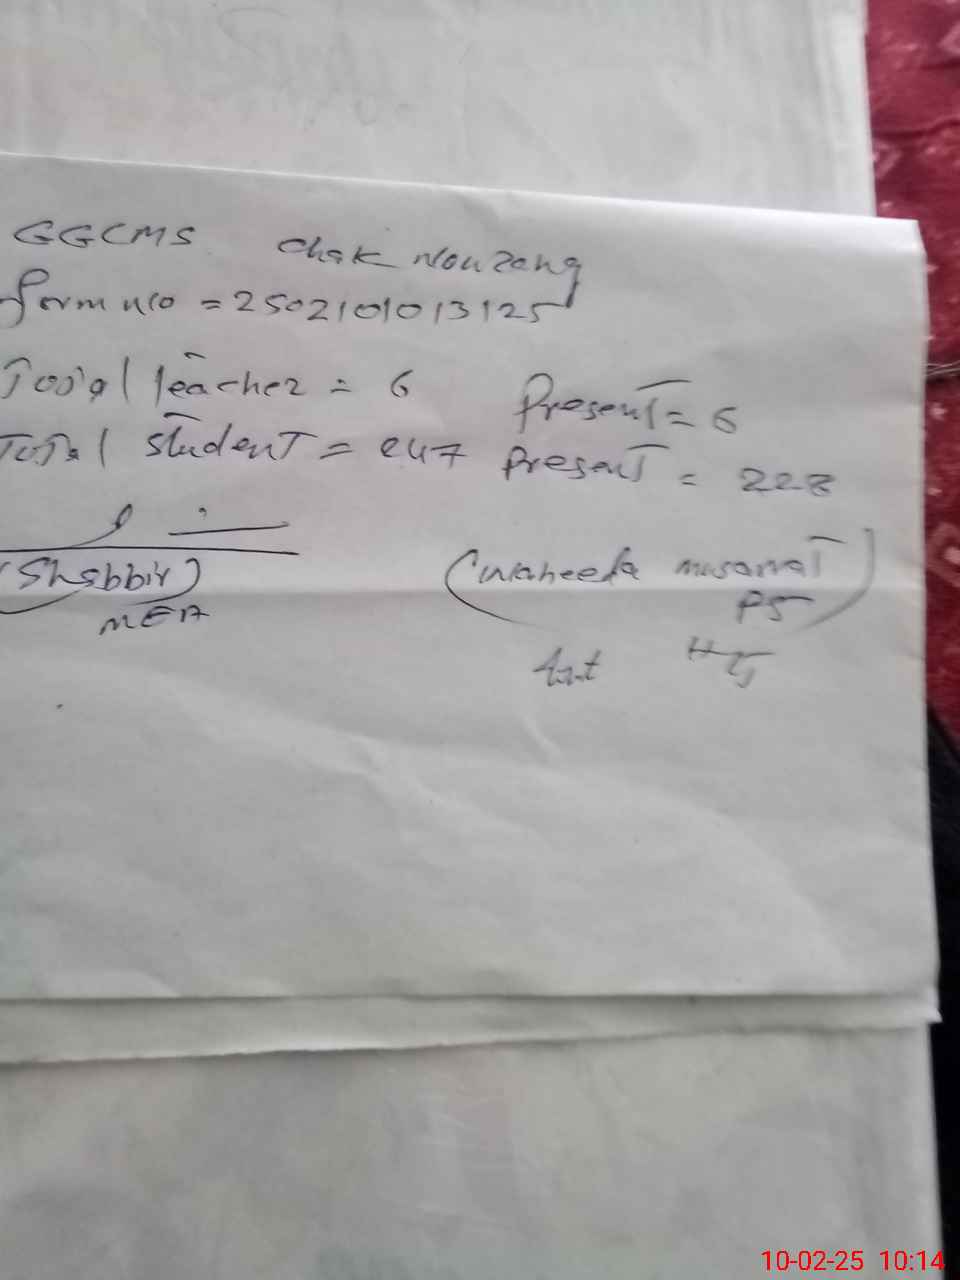 GGCMS Chak Nourang
form no = 2502101013125
Total teacher = 6 Present = 6
Total student = 247 Present = 228
(Shabbir) (waheeda musarrat)
MEA PST
10-02-25 10:14